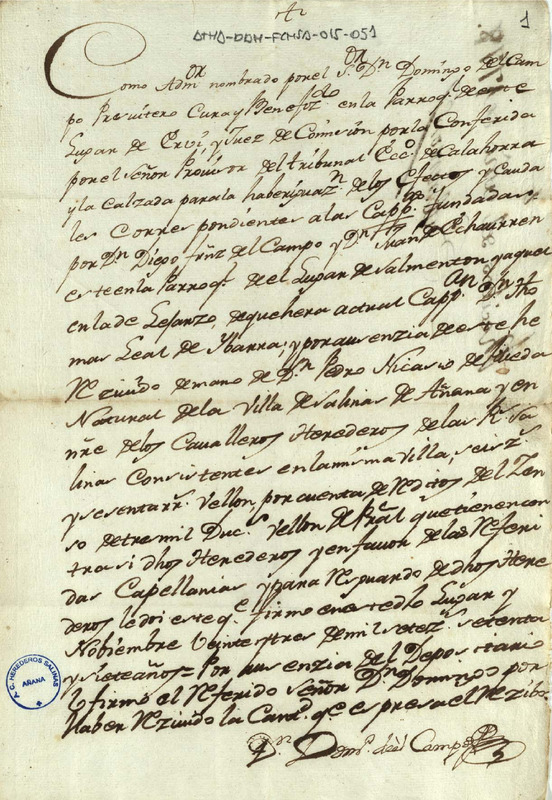 1
ATHA-DAH-FCHSA-015-051
Como Adm.or nombrado por el S.or Dn Domingo del Cam
po Presvitero Cura y Benefiz.do en la Parroq.l de este
Lugar de Ervi y Juez de Comision por la Conferida
por el señor Provisor del tribunal Ecc.o de Calahorra
y la Calzada para la haberiguaz.n de los efectos y Cauda
les Correspondientes a las Capp.s fundadas
por Dn Diego frñz del Campo y Dn Juan de Echaurren
este en la Parroq.l del Lugar de Salmenton y aquel
en la de Lejarzo, de que hera actual Capp.an Dn tho
mas Leal de Ybarra; y por ausenzia de este he
Rezivido de mano de Dn Pedro Nicasio de
Natural de la Villa de Salinas de Añana y en
nre de los Cavalleros Herederos de las R.s Sa
linas Consistentes en la misma Villa, seis z.s
y sesenta rr.s vellon, por cuenta de Reditos del Zen
so de tres mil Duc.s vellon de Pral que tienen con
tra si dhos Herederos y en favor de las Referi
das Capellanias y para Resguardo de dhos Here
deros le doi este q.e firmo en este dho Lugar y
Nobiembre Veinte y tres de mil setez.s setenta
y siete años= Por ausenzia del Depositario
lo firmó el Referido señor Dn Domingo por
haber Rezivido la Cant.d q.e espresa el Rezibo
Dn Dom.o del Campo
P.C. HEREDEROS SALINAS
AÑANA